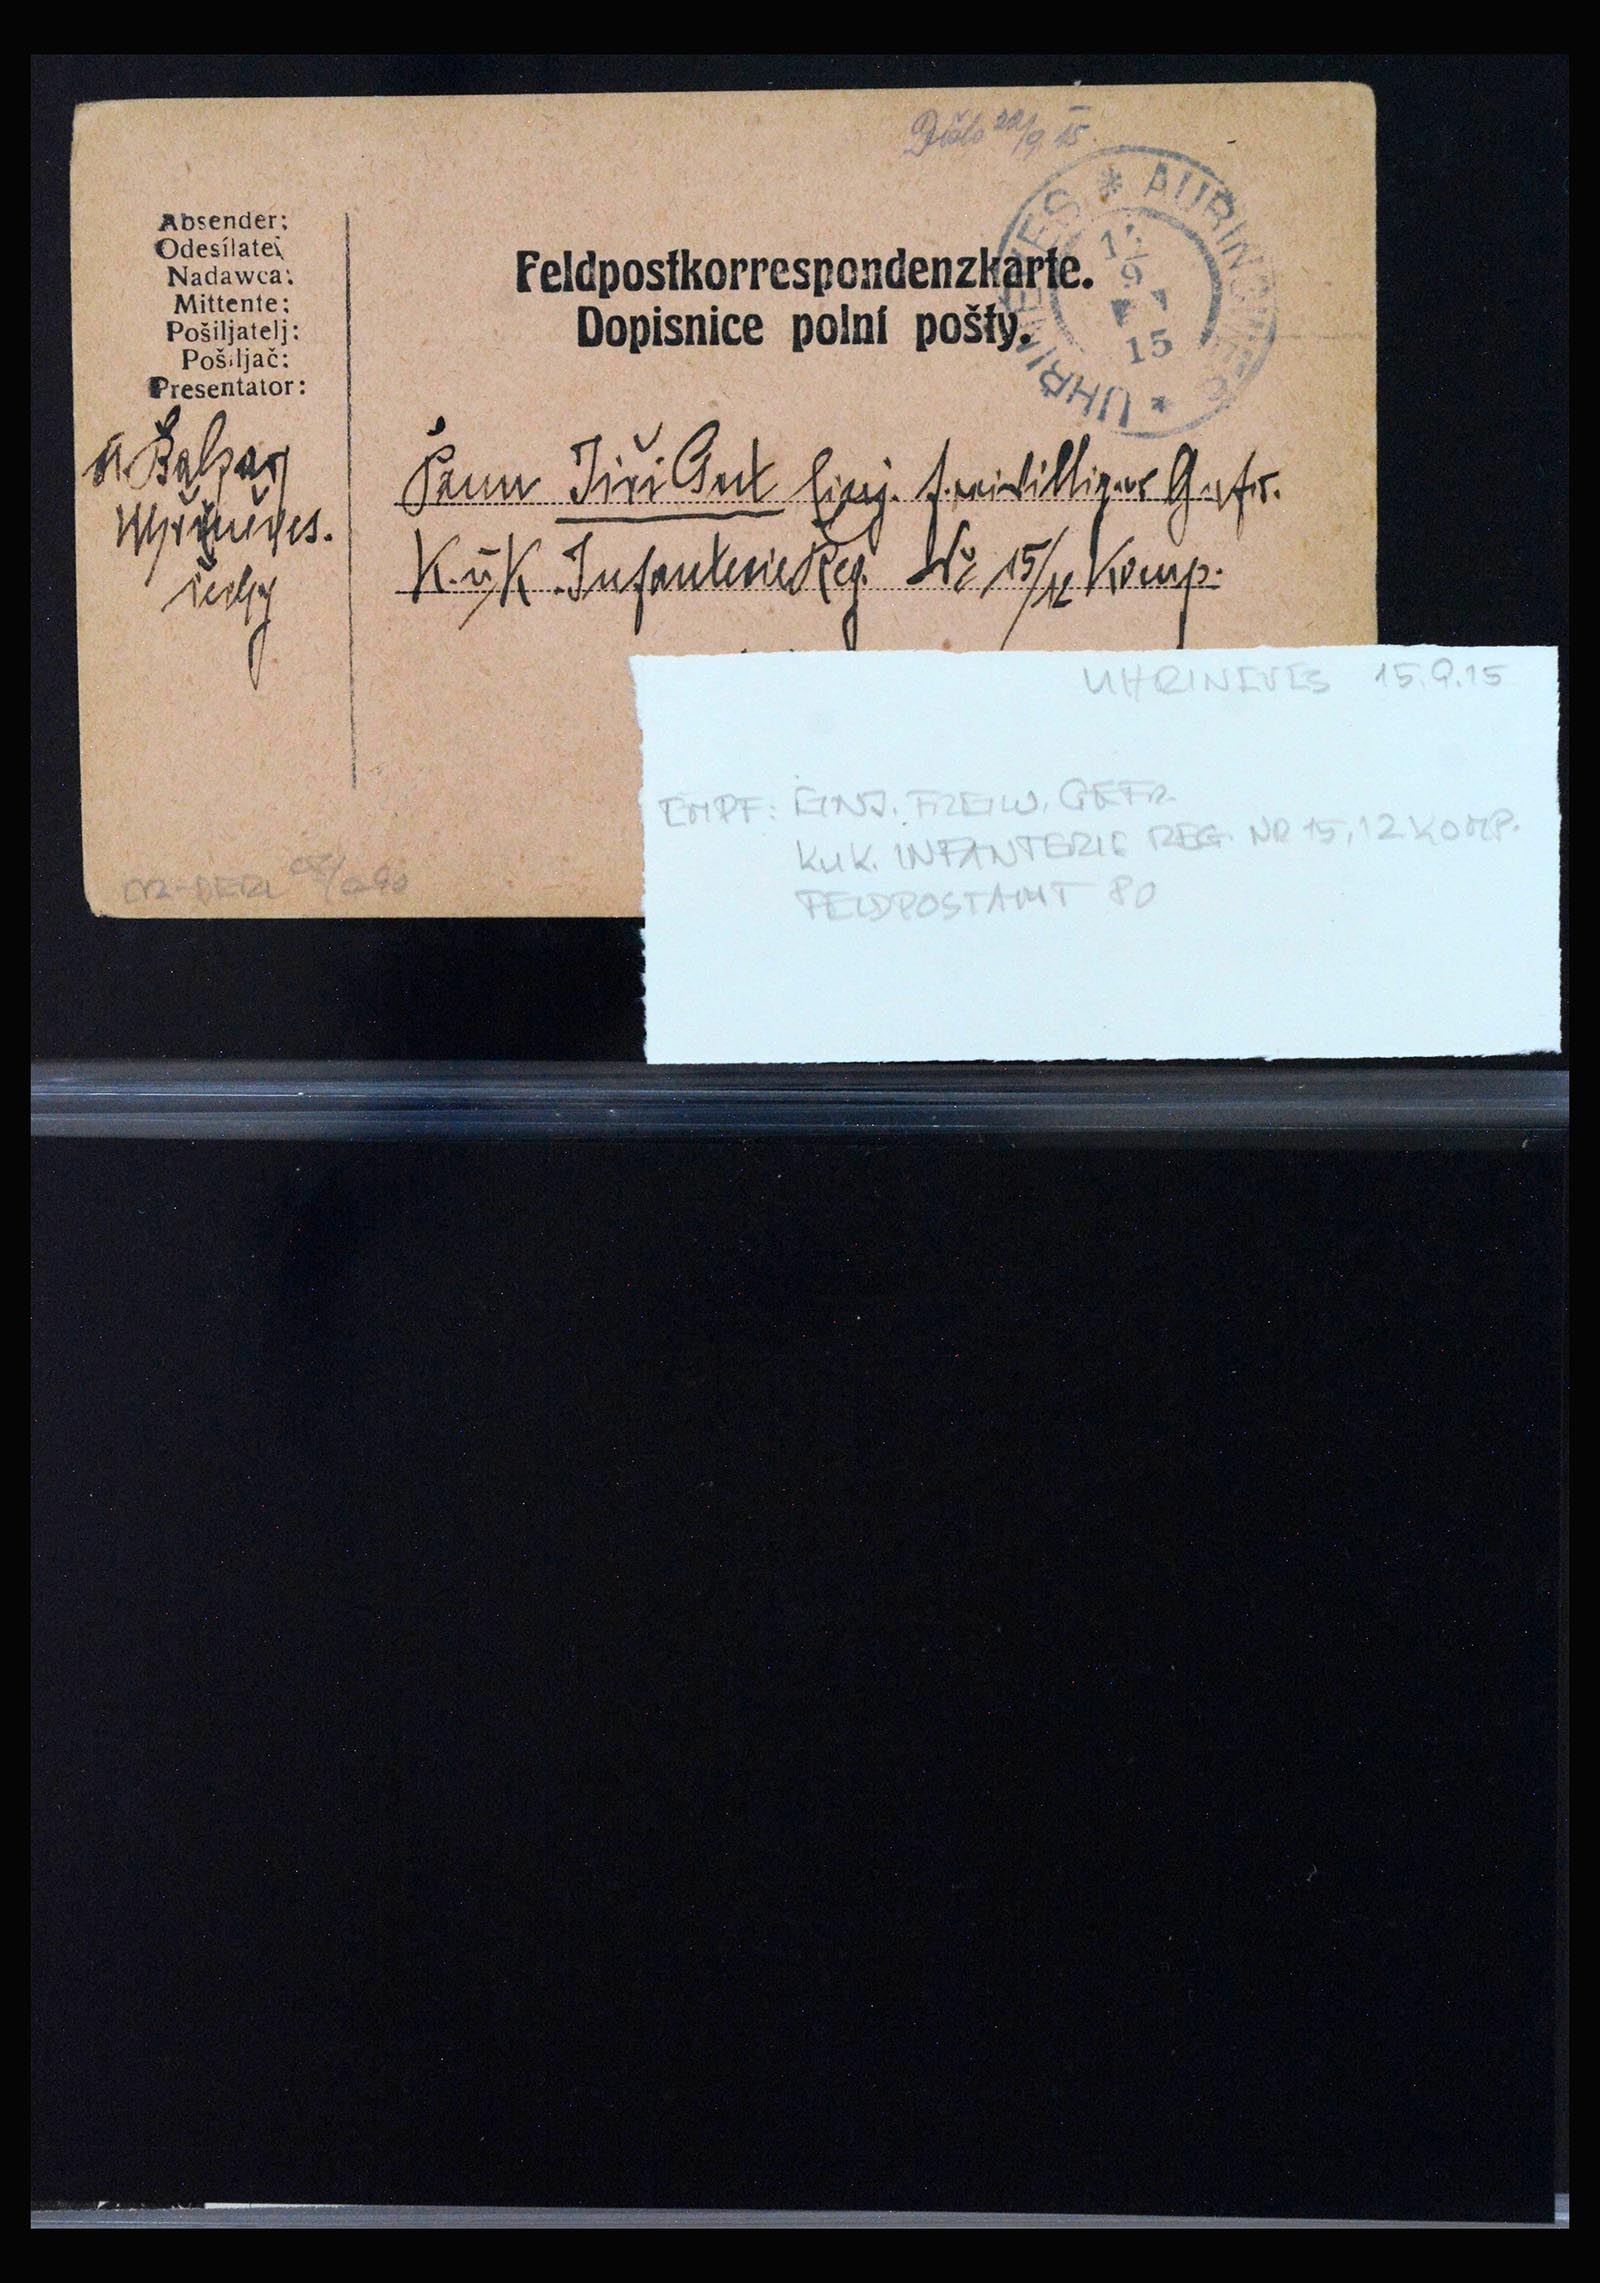 Došlo 22/9 15.
AURINOWES * UHŘINĚVES *
9
15
Absender:
Odesílatel
Nadawca:
Mittente:
Pošiljatelj:
Pošiljač:
Presentator:
Feldpostkorrespondenzkarte.
Dopisnice polní pošty.
Uhříněves.
Čechy
Pann Jiří Gut Einj. freiwilliger Gefr.
K. u K. Infanterie Reg. No 15/12 Komp.
UHRINEVES 15.9.15
EMPF: EINJ. FREIW. GEFR.
KuK. INFANTERIE REG. NR 15, 12 KOMP.
FELDPOSTAMT 80